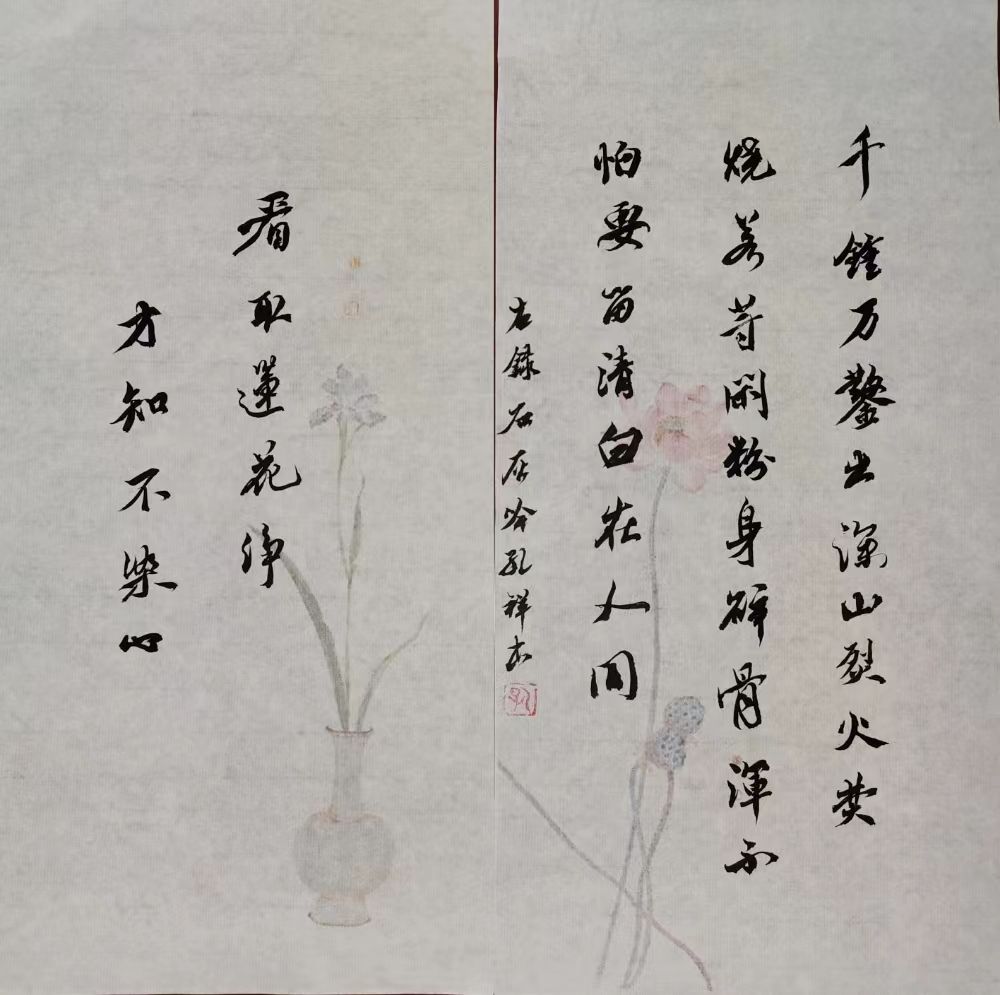 千錘万鑿出深山烈火焚
烧若等闲粉身碎骨渾不
怕要留清白在人间
右録石灰吟孔祥
看取蓮花净
才知不染心